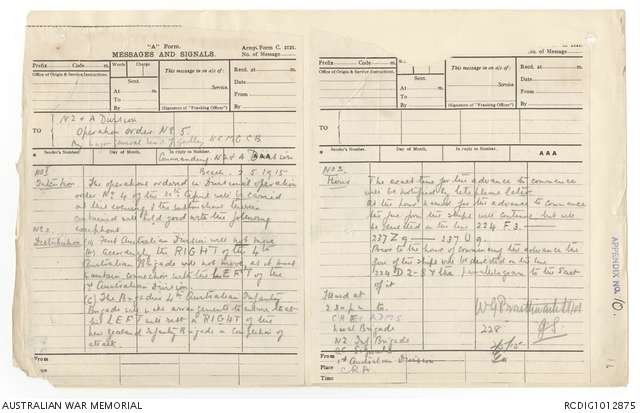 "A" Form.
Army Form C. 2121.
MESSAGES AND SIGNALS.
No. of Message
Prefix Code m.
Words Charge
This message is on a/c of:
Recd. at m.
Office of Origin & Service Instructions.
Sent.
Date
At m.
Service.
From
To
By
(Signature of "Franking Officer")
By
TO
NZ & A Division
Operation Order No 5
By Major General Sir A. J. Godley KCMG CB
Sender's Number Day of Month In reply to Number AAA
Commanding NZ & A Division
No 1
Beach 2.5.1915
Intention
The operations ordered in Divisional operation
order No 4 of the 30th April will be carried
out this evening & the instructions therein
contained will hold good with the following
exceptions
No 2
Distribution
(a) First Australian Division will not move
(b) Accordingly the RIGHT of the 4th
Australian Brigade will not move as it must
maintain connection with the LEFT of the
1st Australian Division
(c) The Brigadier 4th Australian Infantry
Brigade will make arrangements to ensure that
his LEFT will rest on RIGHT of the
New Zealand Infantry Brigade on completion of
attack.
From
Place
Time
No. of Message
Prefix Code m.
This message is on a/c of:
Recd. at m.
Office of Origin and Service Instructions.
Sent.
Date
At m.
Service.
From
To
By
(Signature of "Franking Officer")
By
TO
Sender's Number Day of Month In reply to Number AAA
No 3
Hours
The exact time for the advance to commence
will be notified by telephone later.
At the hour named for the advance to commence
the fire from the ships will continue but will
be directed on the line 224 F 3 —
237 Z 9 — 237 U 9.
Prior to the hour of commencing the advance the
fire of the ships will be directed on the line
224 D 2-8 & the parallelogram to the East
of it
Issued at
2.30 p.m. to
C.R.E. ADMS
4 Aus Brigade
NZ Inf Brigade
OC Signals
1st Australian Division
CRA
W G Braithwaite Lt Col
G.S.
228
2/5/15
From
Place
Time
APPENDIX NO. 10.
AUSTRALIAN WAR MEMORIAL
RCDIG1012875